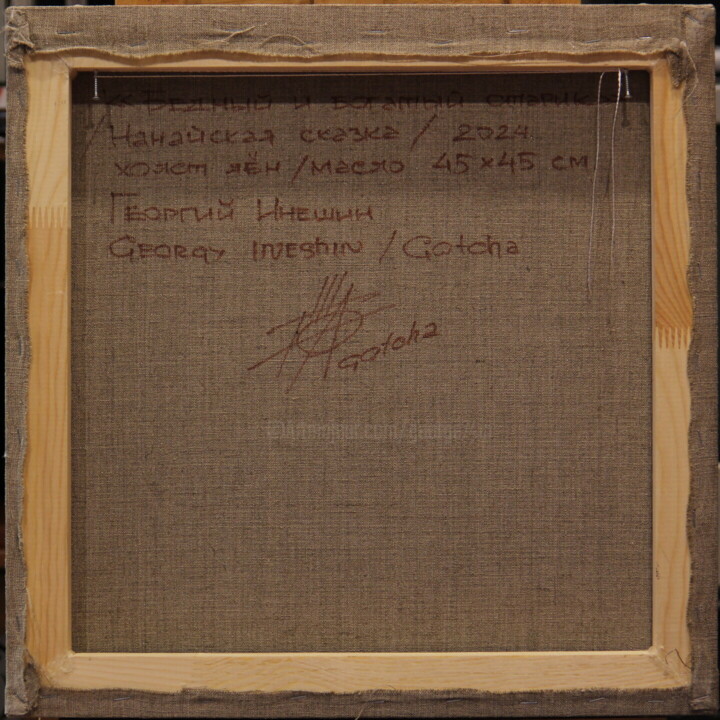 «Бедный и богатый старик»
Нанайская сказка / 2024
холст лён /масло 45×45 см
Георгий Инешин
Georgy Ineshin / Gotcha
Gotcha